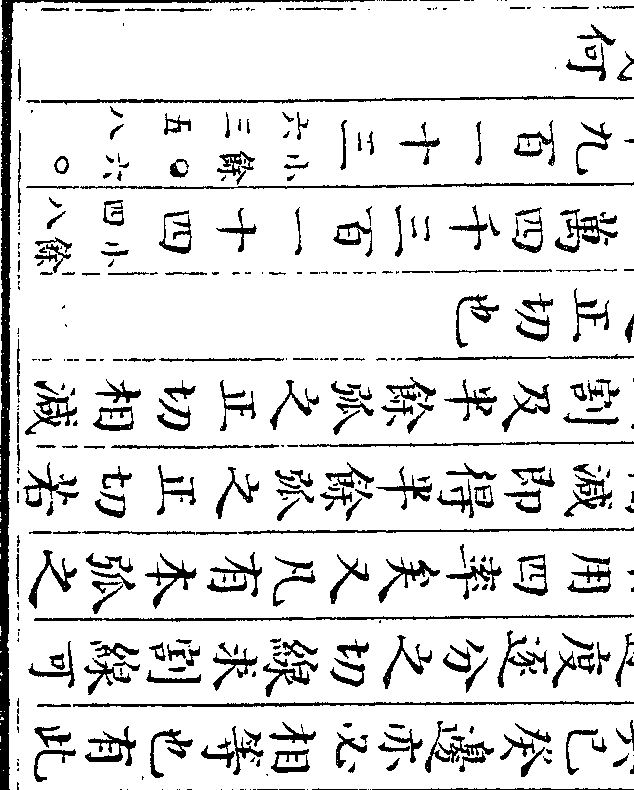 己癸邊亦必相等也有此
度逐分之切線求割線可
用四率矣又凡有本弧之
減即得半餘弧之正切若
割及半餘弧之正切相減
正切也
萬四千三百一十四小餘四八
九百一十三小餘〇六〇六三五八
何